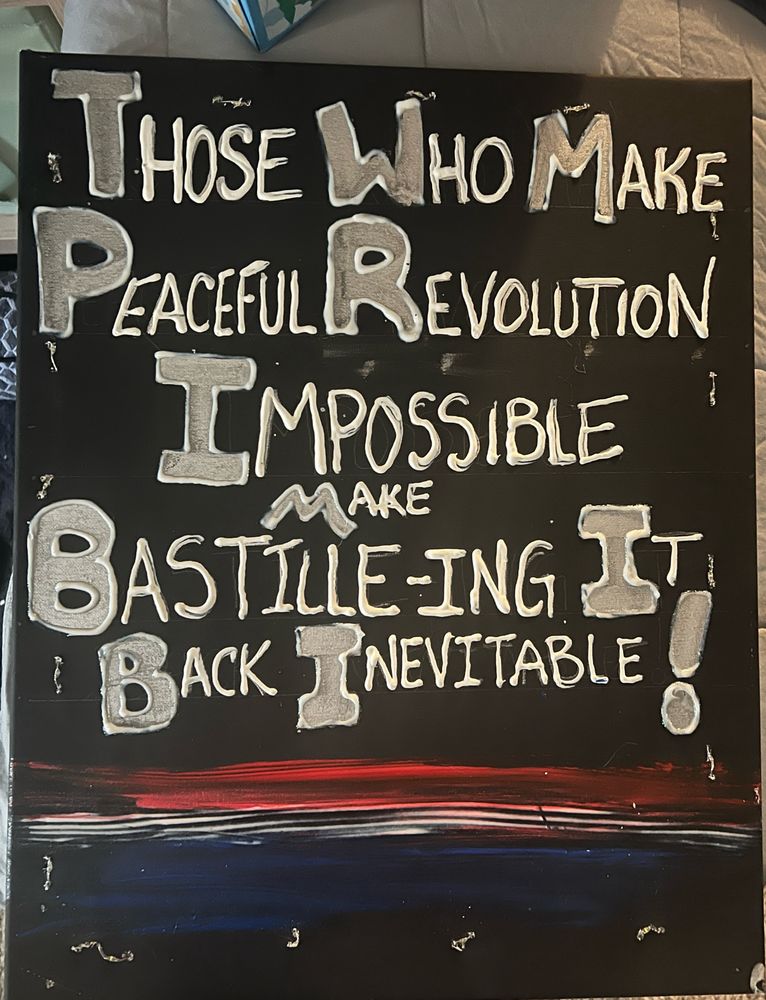 Those Who Make
Peaceful Revolution
Impossible
Make
Bastille-ing It
Back Inevitable!